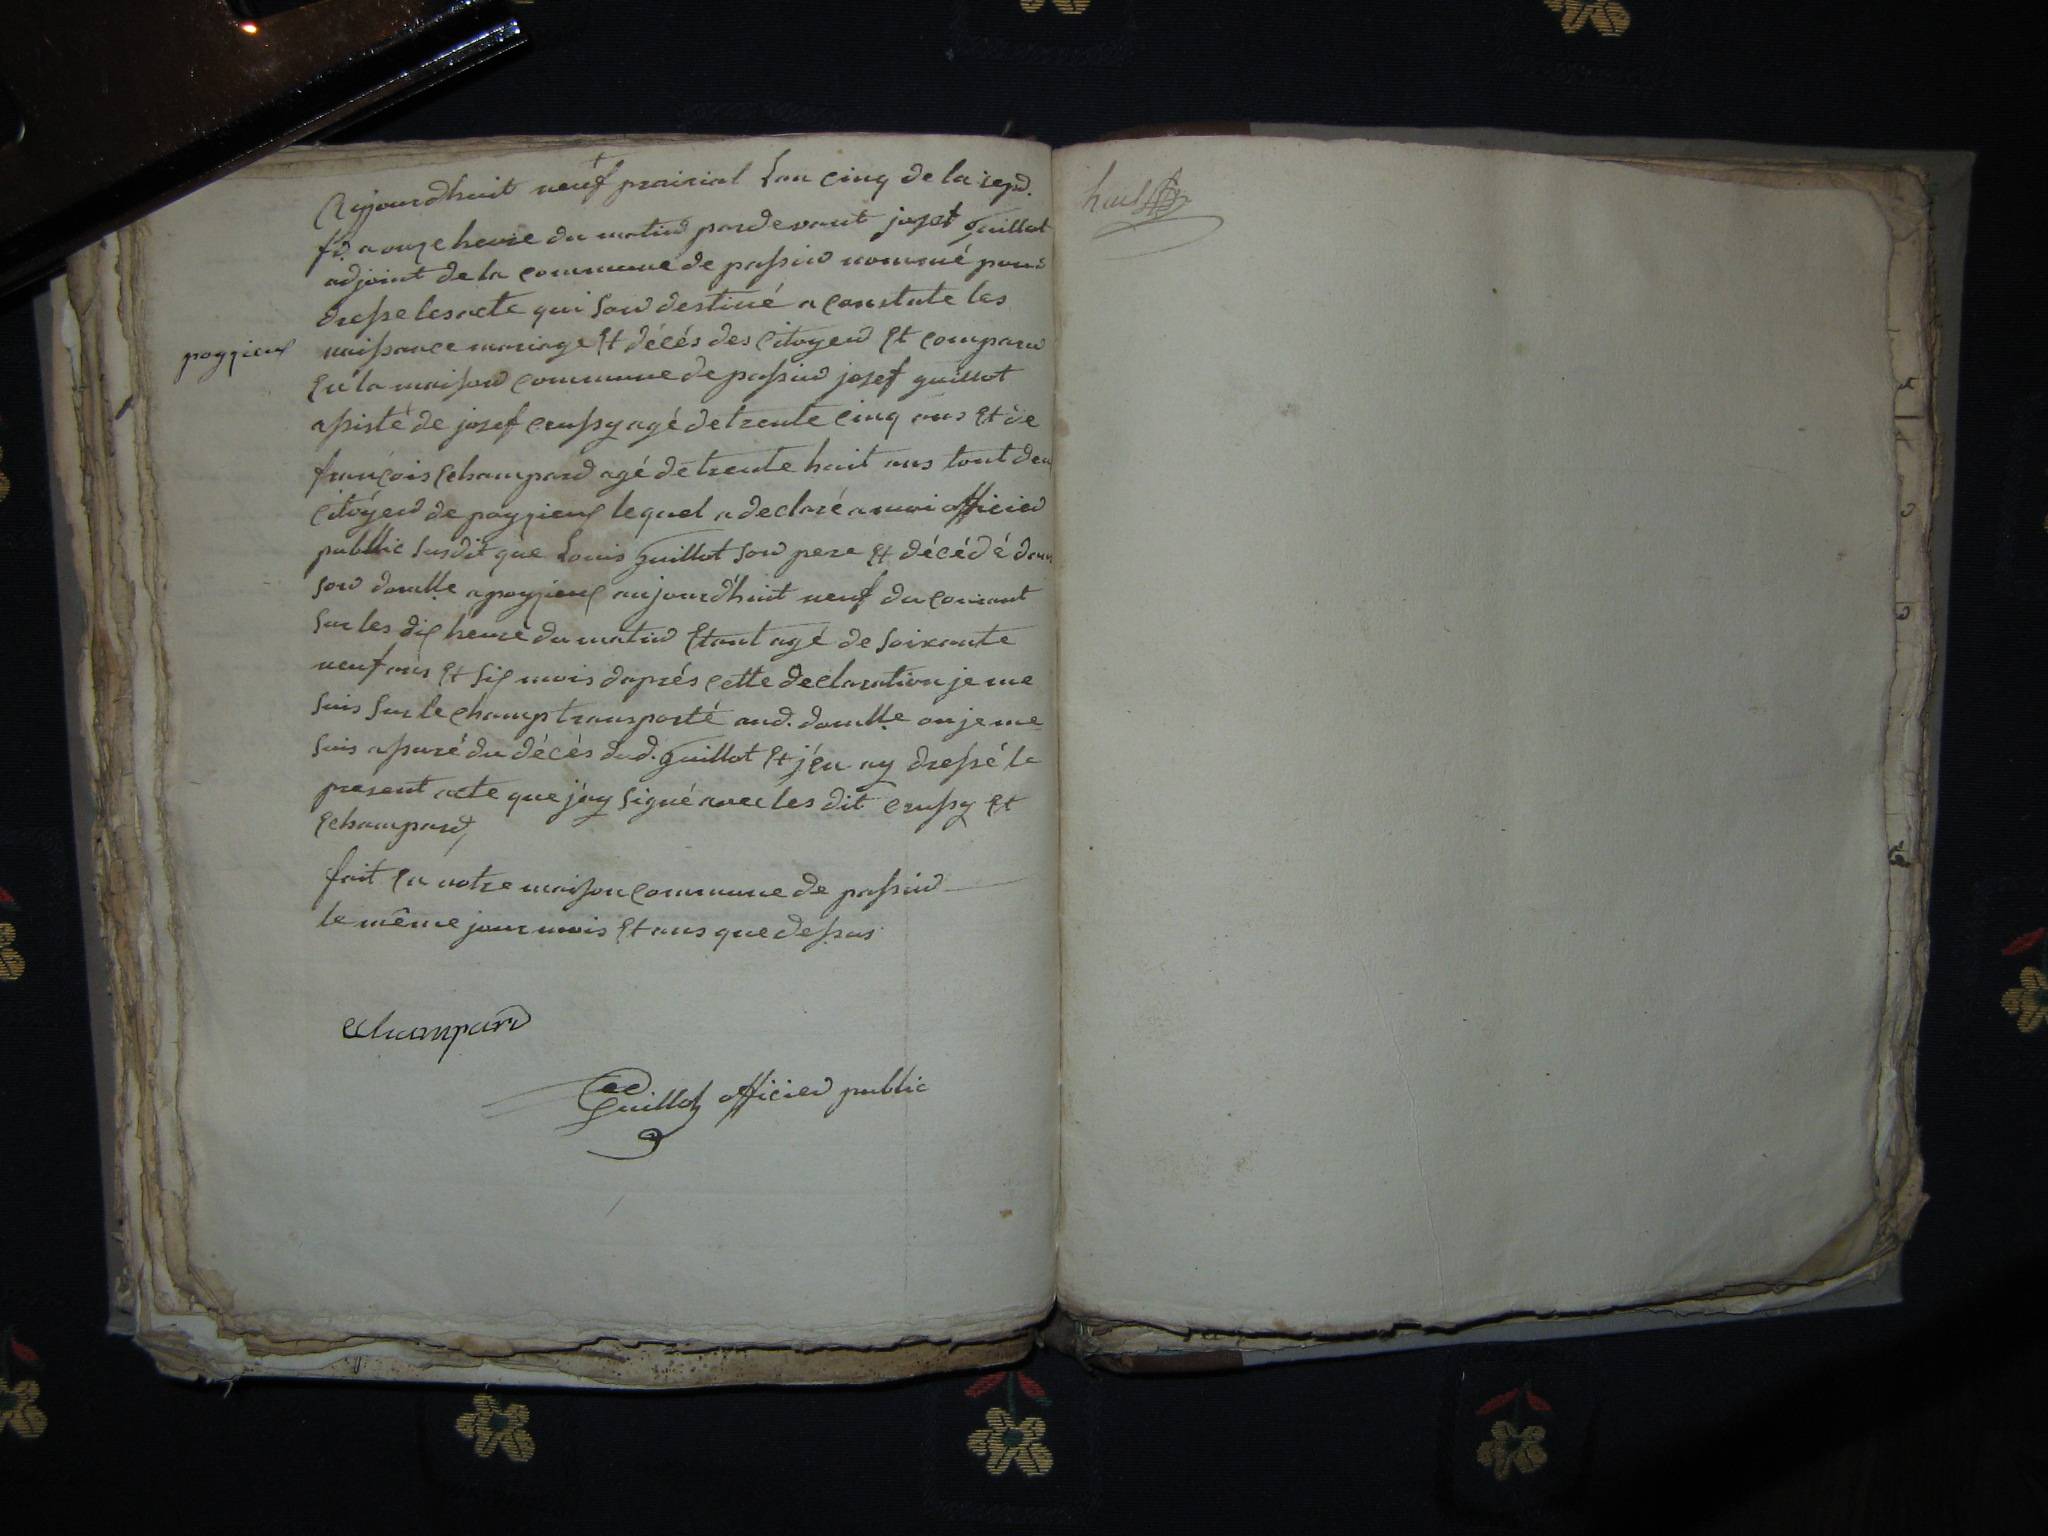 Aujourdhuit neuf prairial Lan cinq de la repd.
fd. a onze heure du matin pardevant josef Guillot
adjoint de la commune de passin nommé pour
dresse les acte qui son destiné a constate les
naissance mariage Et décés des Citoyen Et comparu
poyzieux
En la maison commune de passin josef guillot
assisté de josef crussy agé de trente cinq ans Et de
françois Echampard agé de trente huit ans tout deu
Citoyen de poyzieux lequel a declaré a moi officier
public susdit que Louis Guillot son pere Et décédé dans
son domlle a poyzieux aujourd'huit neuf du courant
sur les dix heure du matin Etant agé de soixante
neuf ans Et six mois daprés cette declaration je me
suis sur le champ transporté aud. domlle ou je me
suis assuré du décés dud. Guillot Et j'en ay dressé le
present acte que j'ay signé avec les dit crussy Et
Echampard,
fait En notre maison commune de passin
le même jour mois Et ans que dessus
echampard
Guillot officier public